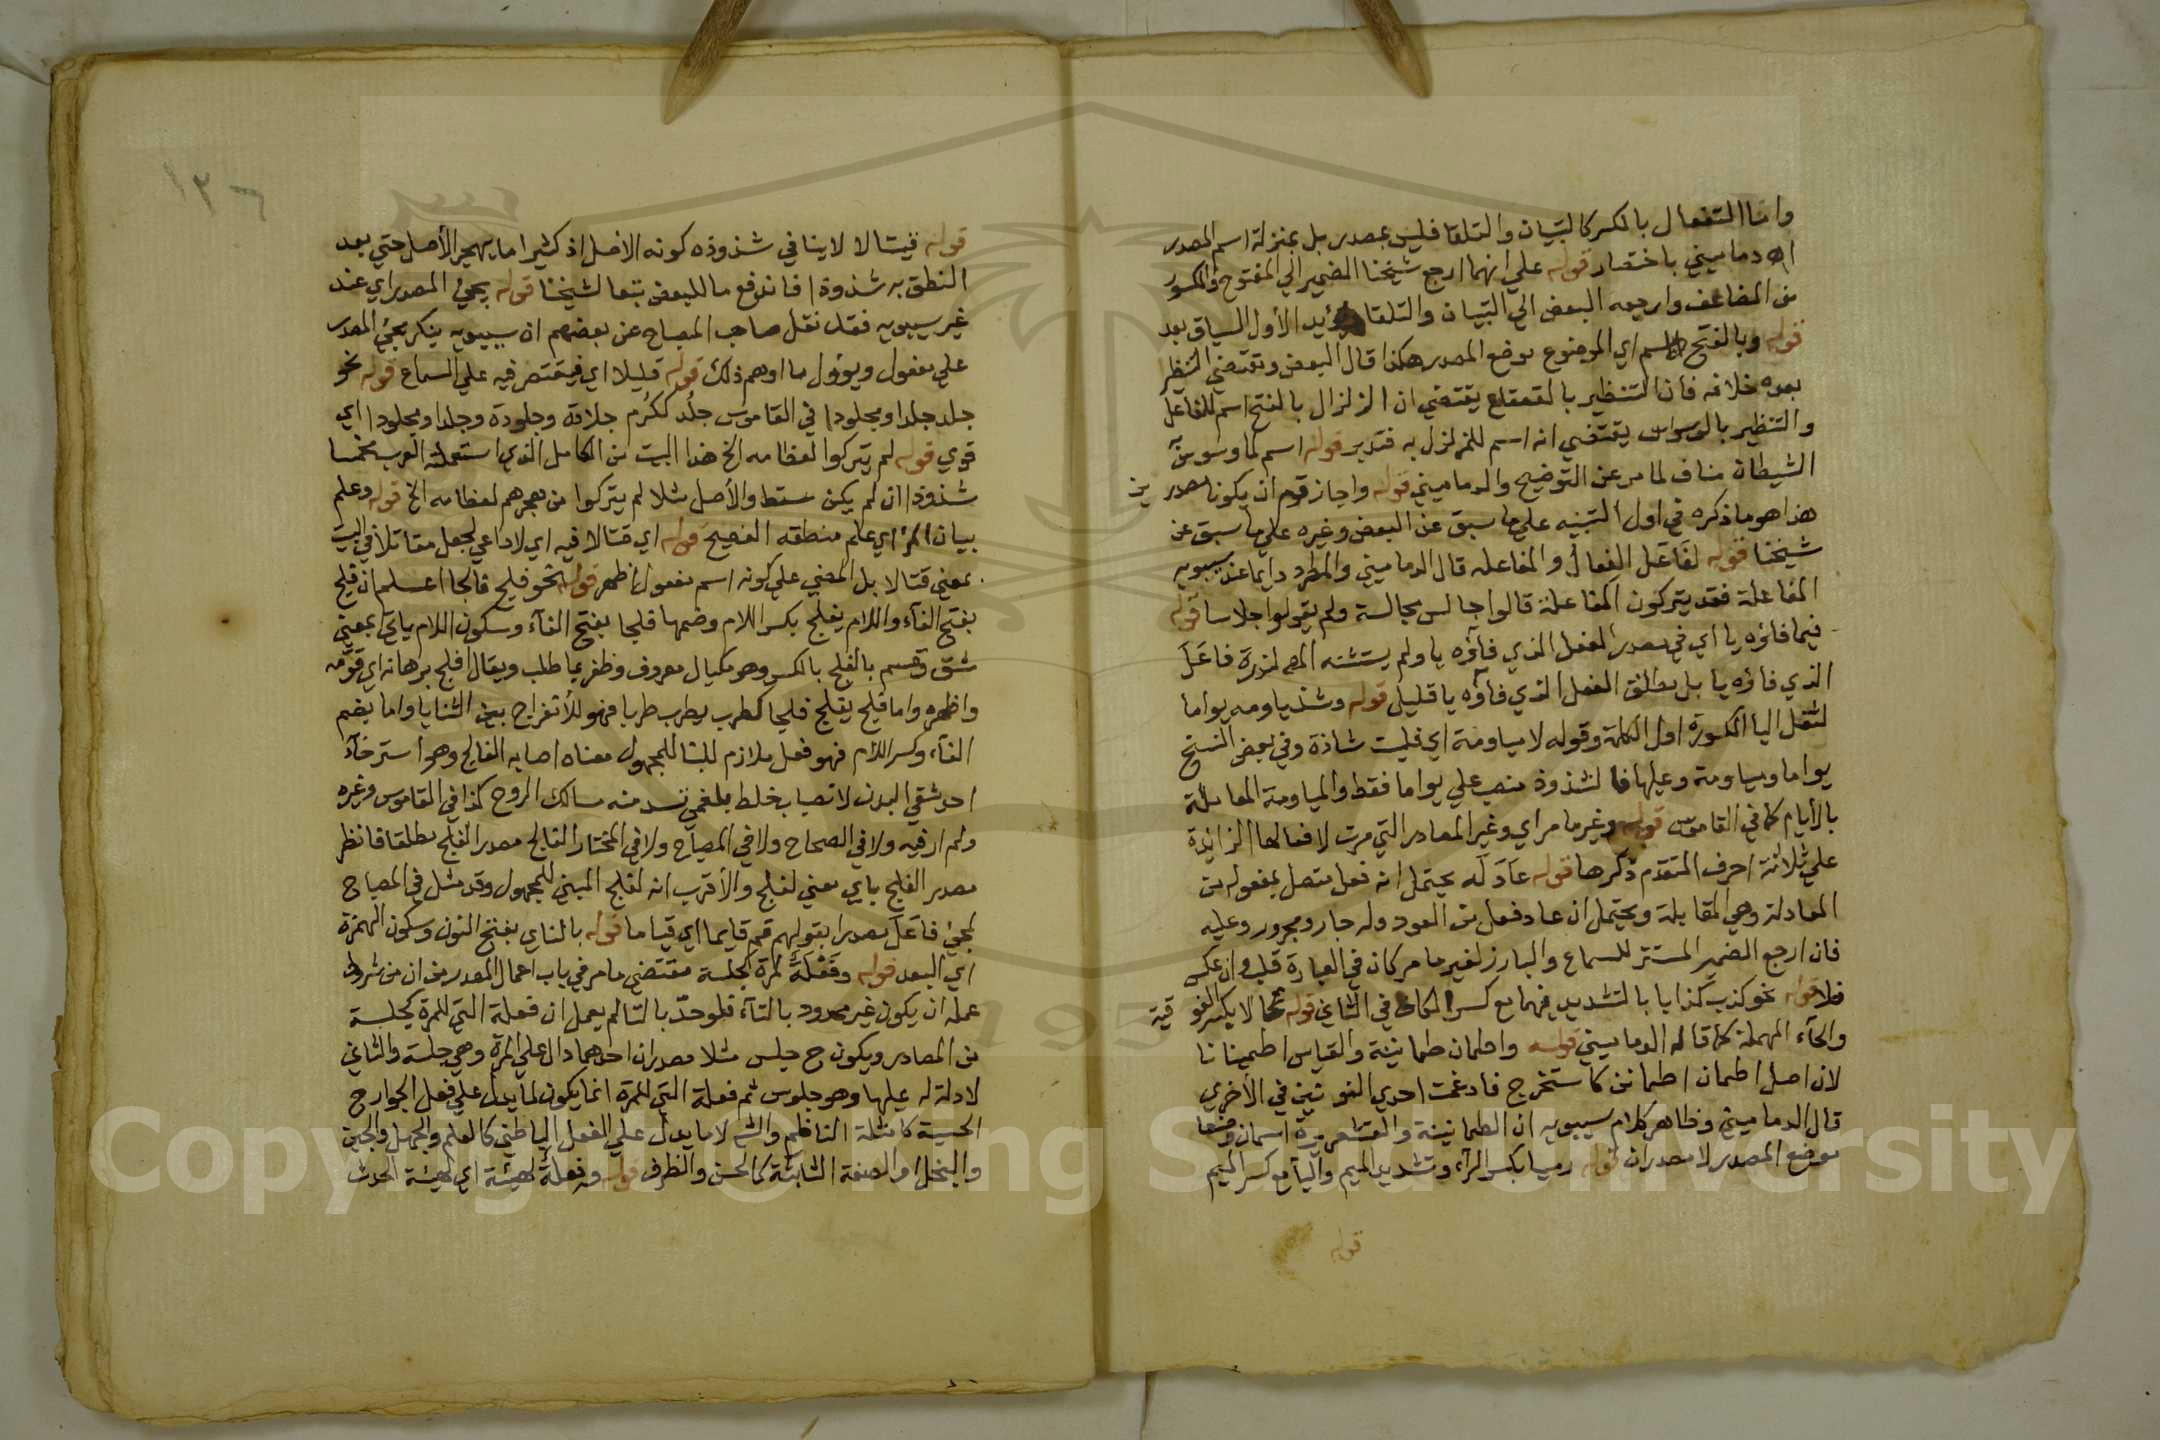 واما التفعال بالكسر كالتبيان والتلقا فليس بمصدر بل بمنزلة اسم المصدر
اه دماميني باختصار قوله علي انهما ارجع شيخنا الضمير الي المفتوح والمكسور
من المضاعف وارجعه البعض الي التبيان والتلقا ويؤيد الأول السياق بعد
قوله وبالفتح الاسم اي الموضوع موضع المصدر هكذا قال البعض وتقتضي التنظير
بعده خلافه فان التنظير بالقعقاع يقتضي ان الزلزال بالفتح اسم للفاعل
والتنظير بالوسواس يقتضي انه اسم للمزلزل به فتدبر قوله اسم لما وسوس به
الشيطان مناف لما مر عن التوضيح والدماميني قوله واجاز قوم ان يكونا مصدر ين
هذا هو ما ذكره في اول التنبيه علي ما سبق عن البعض وغيره علي ما سبق عن
شيخنا قوله لفاعل الفعال والمفاعله قال الدماميني والمطرد دايما عند سيبويه
المفاعلة فقد يتركون المفاعلة قالوا جالس مجالسة ولم يقولوا جلاسا قوله
فيما فاؤه يا اي في مصدر الفعل الذي فآؤه يا ولم يستثنه المص لندرة فاعل
الذي فاؤه يا بل مطلق الفعل الذي فآؤه يا قليل قوله وشذ ياومه يواما
لثقل اليا المكسورة اول الكلمة وقوله لا مياومة اي فليست شاذة وفي بعض النسخ
يواما ومياومة وعليها فالشذوذ منصب علي يواما فقط والمياومة المعاملة
بالأيام كما في القاموس قوله وغير ما مر اي وغير المصادر التي مرت لافعالها الزائدة
علي ثلاثة احرف المتقدم ذكرها قوله عادله يحتمل انه فعل متصل بمفعوله من
المعادلة وهي المقابلة ويحتمل ان عاد فعل من العود وله جار ومجرور وعليه
فان ارجع الضمير المستتر للسماع والبارز لغير ما مر كان في العبارة قلب وان عكس
فلا قوله نحو كذب كذابا بالتشديد فيهما مع كسر الكاف في الثاني قوله تحمالا بكسر الفو قية
والحآء المهملة كما قاله الدماميني قوله واطمان طمانينة والقياس اطمينانا
لان اصل اطمان اطمانن كاستخرج فادغمت احدي النونين في الأخري
قال الدماميني وظاهر كلام سيبويه ان الطمانينة والقشعريرة اسمان وضعا
موضع المصدر لا مصدران قوله رميا بكسر الرآء وتشديد الميم واليآ مع كسر الميم
قوله
١٣٦
قوله قيتالا لا ينافي شذوذه كونه الاصل اذ كثيرا ما يهجر الأصل حتي يعد
النطق به شذوذا فاندفع ما للبعض تبعا لشيخنا قوله يجئ المصدر اي عند
غير سيبويه فقد نقل صاحب المصباح عن بعضهم ان سيبويه ينكر مجئ المصدر
علي مفعول ويؤول ما اوهم ذلك قوله قليلا اي فيقتصر فيه علي السماع قوله نحو
جلد جلدا ومجلودا في القاموس جلد ككرم جلادة وجلودة وجلدا ومجلودا اي
قوي قوله لم يتركوا لعظامه الخ هذا البيت من الكامل الذي استعملته العرب مخمسا
شذوذا ان لم يكن سقط والأصل مثلا لم يتركوا من هجرهم لعظامه الخ قوله وعلم
بيان المرء اي علم منطقه الفصيح قوله اي قتالا فيه اي لا داعي لجعل مقاتلا في البيت
بمعني قتالا بل المضي علي كونه اسم مفعول اظهر قوله نحو فلج فالجا اعلم ان فلج
بفتح الفآء واللام يفلج بكسر اللام وضمها فلجا بفتح الفآء وسكون اللام ياتي بمعني
شق وقسم بالفلج بالكسر وهو مكيال معروف وظفر بما طلب ويقال افلج برهانه اي قومه
واظهره واما فلج يفلج فلجا كطرب يطرب طربا فهو للأنفراج بين الثنايا واما بضم
الفآء وكسر اللام فهو فعل ملازم للبنا للمجهول معناه اصابه الفالج وهو استرخآء
احد شقي البدن لانصباب خلط بلغمي تنسد منه مسالك الروح كذا في القاموس وغيره
ولم ار فيه ولا في الصحاح ولا في المصباح ولا في المختار الفالج مصدر الفلج مطلقا فانظر
مصدر الفلج باي معني لفلج والأقرب انه لفلج المبني للمجهول وقد مثل في المصباح
لمجئ فاعل مصدرا بقولهم قم قايما اي قياما قوله بالناي بفتح النون وسكون الهمزة
اي البعد قوله وفعلة لمرة كجلسة مقتضي ما مر في باب اعمال المصدر من ان من شروط
عمله ان يكون غير محدود بالتآء فلو حد بالتا لم يعمل ان فعلة التي للمرة كجلسة
من المصادر ويكون ح جلس مثلا مصدران احدهما دال علي المرة وهي جلسة والثاني
لا دلالة له عليها وهو جلوس ثم فعلة التي للمرة انما يكون لما يدل علي فعل الجوارح
الحسية كامثلة الناظم والشـ لا ما يدل علي الفعل الباطني كالعلم والجهل والجبن
والبخل او الصفة الثابتة كالحسن والظرف قوله وفعلة لهيئة اي لهيئة الحدث
Copyright © King Saud University
1957